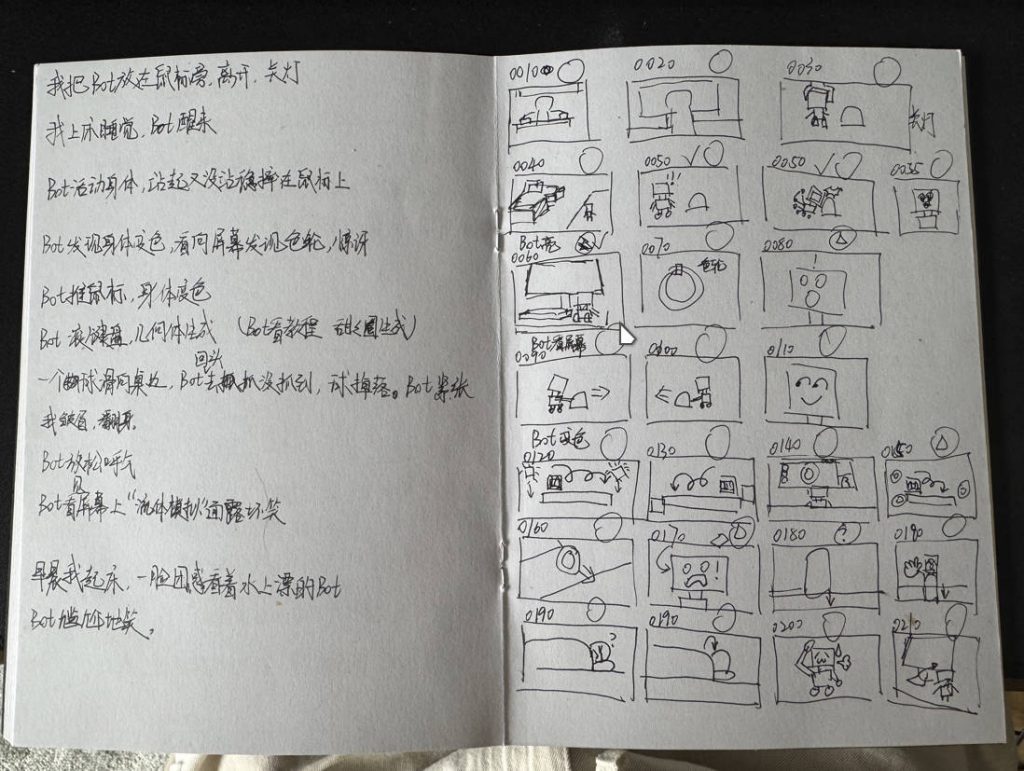 我把Bot放在鼠标旁，离开，关灯
我上床睡觉，Bot醒来
Bot活动身体，站起又没站稳摔在鼠标上
Bot发现身体变色，看向屏幕发现色轮，惊讶
Bot推鼠标，身体变色
Bot滚键盘，几何体生成 （Bot看教程 甜甜圈生成）
回头
一个球滑向桌边，Bot去抓没抓到，球掉落。Bot紧张
我皱眉，翻身。
Bot放松呼气
见
Bot看屏幕上“流体模拟”面露坏笑
早晨我起床，一脸困惑看着水上漂的Bot
Bot尴尬地笑。
0010
0020
0030
关灯
0040
0050
0050
0055
Bot亮
0060
0070
色轮
0080
Bot看屏幕
0090
0100
0110
Bot变色
0120
0130
0140
0150
0160
0170
0180
?
0190
0190
?
0190
0200
0210